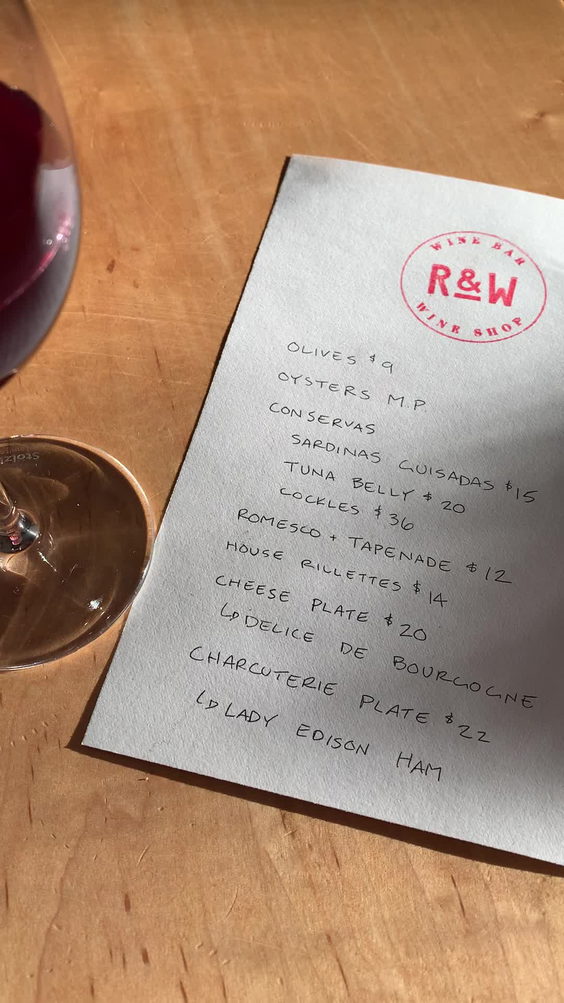 WINE BAR
R&W
WINE SHOP
OLIVES $9
OYSTERS M.P.
CONSERVAS
SARDINAS GUISADAS $15
TUNA BELLY $20
COCKLES $36
ROMESCO + TAPENADE $12
HOUSE RILLETTES $14
CHEESE PLATE $20
↳DELICE DE BOURGOGNE
CHARCUTERIE PLATE $22
↳LADY EDISON HAM